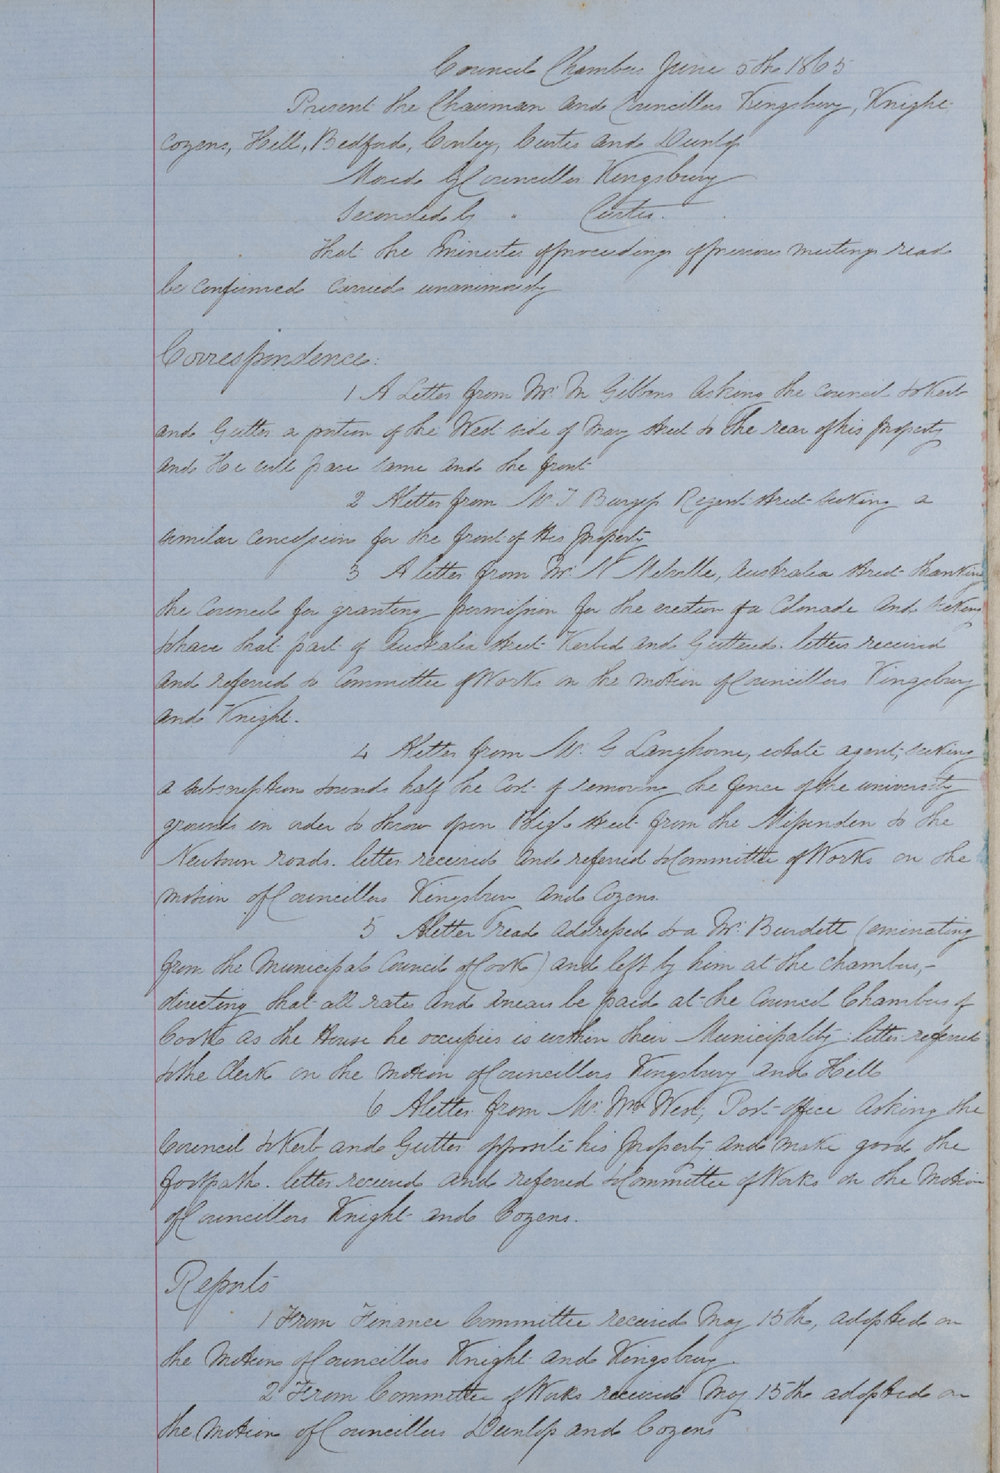 Council Chambers June 5th 1865
Present the Chairman and Councillors Kingsbury, Knight
Cozens, Hill, Bedford, Conley, Curtis and Dunlop
Moved by Councillor Kingsbury
Seconded by " Curtis.
That the Minutes of proceedings of previous meetings read
be confirmed carried unanimously
Correspondence:
1 A Letter from Mr. M Gibbons asking the Council to Kerb
and Gutter a portion of the West side of May street to the rear of his Property
and He will pave same and the front
2 A letter from Mr. T Burgess Regent street seeking a
similar concession for the front of His Property
3 A letter from Mr. N Melville, Australia street thanking
the Council for granting permission for the erection of a Colonade and seeking
to have that part of Australia street Kerbed and Guttered. letters received
and referred to Committee of Works on the motion of Councillors Kingsbury
and Knight.
4 A letter from Mr. G Langhorne, estate agent, seeking
a subscription towards half the Cost of removing the fence of the university
grounds in order to throw open High street from the Missenden to the
Newtown roads. letter received and referred to Committee of Works on the
motion of Councillors Kingsbury and Cozens.
5 A letter read addressed to a Mr. Burdett (eminating
from the Municipal Council of Cook) and left by him at the chambers,-
directing that all rates and arrears be paid at the Council Chambers of
Cook as the House he occupies is within their Municipality. letter referred
to the Clerk on the motion of Councillors Kingsbury and Hill
6 A letter from Mr. Wm West, Post-office asking the
Council to Kerb and Gutter opposite his Property and make good the
footpath. letter received and referred to Committee of Works on the Motion
of Councillors Knight and Cozens.
Reports
1 From Finance Committee received May 15th, adopted on
the Motion of Councillors Knight and Kingsbury
2 From Committee of Works received May 15th adopted on
the Motion of Councillors Dunlop and Cozens